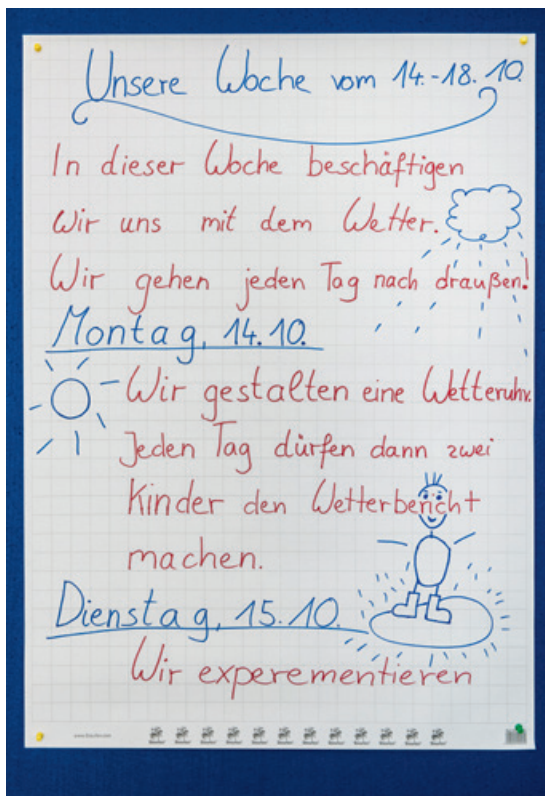 Unsere Woche vom 14.-18.10.
In dieser Woche beschäftigen
Wir uns mit dem Wetter.
Wir gehen jeden Tag nach draußen!
Montag, 14.10.
Wir gestalten eine Wetteruhr.
Jeden Tag dürfen dann zwei
Kinder den Wetterbericht
machen.
Dienstag, 15.10.
Wir experementieren